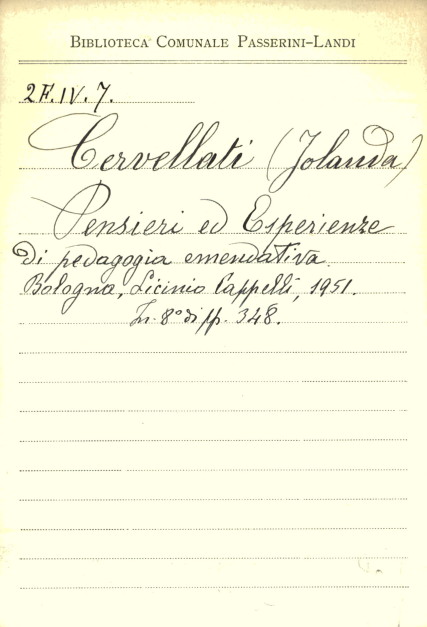 BIBLIOTECA COMUNALE PASSERINI-LANDI
2F.IV.7.
Cervellati (Jolanda)
Pensieri ed Esperienze
di pedagogia emendativa.
Bologna, Licinio Cappelli, 1951.
In 8° di pp. 348.